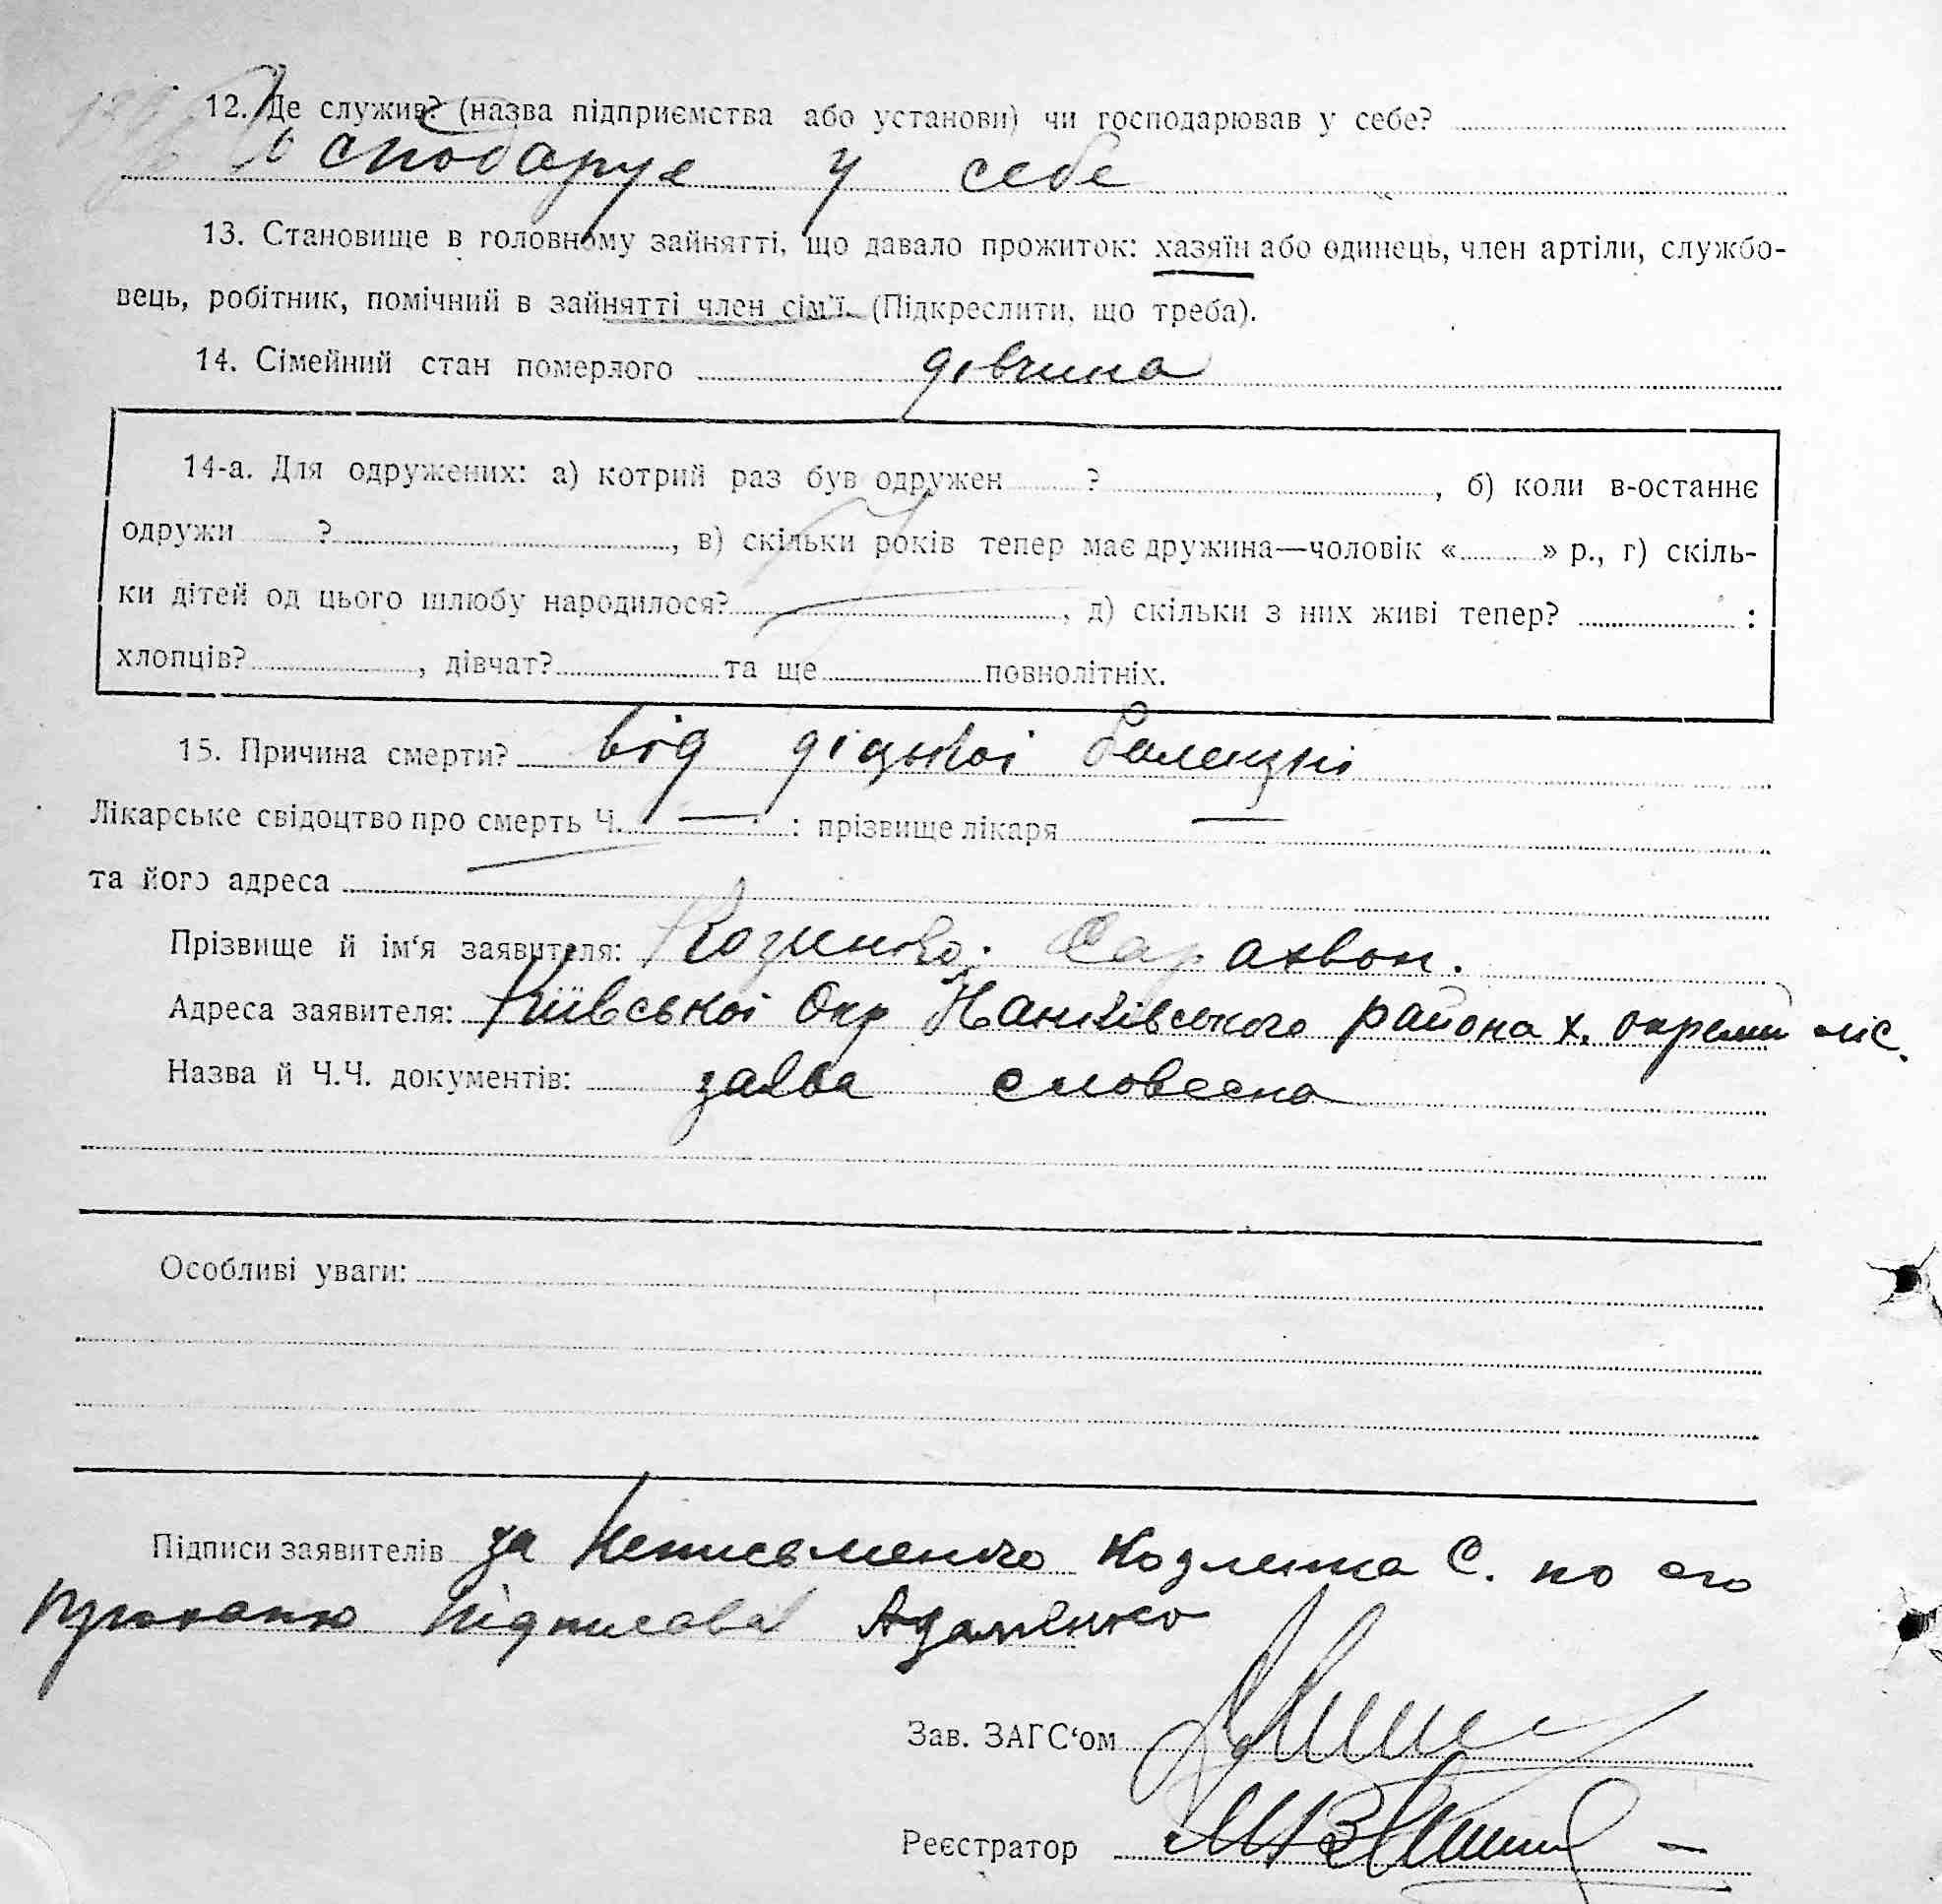 12. Де служив? (назва підприємства або установи) чи господарював у себе?
Господарує у себе
13. Становище в головному зайнятті, що давало прожиток: хазяїн або одинець, член артіли, службо-
вець, робітник, помічний в зайнятті член сім'ї. (Підкреслити, що треба).
14. Сімейний стан померлого дівчина
14-а. Для одружених: а) котрий раз був одружен ? , б) коли в-останнє
одружи ? , в) скільки років тепер має дружина—чоловік « » р., г) скіль-
ки дітей од цього шлюбу народилося? , д) скільки з них живі тепер? :
хлопців? , дівчат? та ще повнолітніх.
15. Причина смерти? від діцької
Лікарське свідоцтво про смерть Ч. — : прізвище лікаря —
та його адреса
Прізвище й ім'я заявителя:
Адреса заявителя: Київської Окр района х. окремі
Назва й Ч.Ч. документів: заява словесна
Особливі уваги:
Підписи заявителів за Неписьменого Козленка С. по его
підписав Адаменко
Зав. ЗАГС'ом
Реєстратор